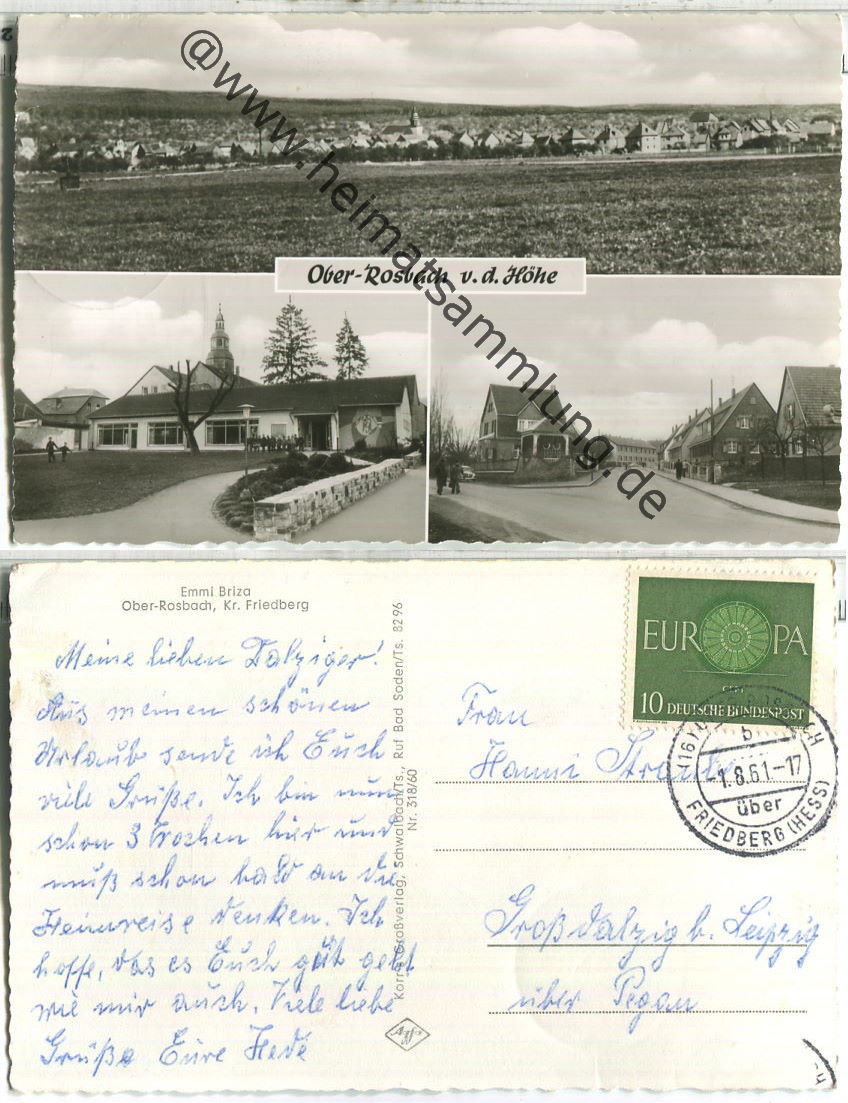 @www.heimatsammlung.de
Ober-Rosbach v. d. Höhe
Emmi Briza
Ober-Rosbach, Kr. Friedberg
Meine lieben Dalziger!
Aus meinen schönen
Urlaub sende ich Euch
viele Grüße. Ich bin nun
schon 3 Wochen hier und
muß schon bald an die
Heimreise denken. Ich
hoffe, das es Euch gut geht
wie mir auch. Viele liebe
Grüße Eure Hede
Korr's Großverlag, Schwalbach/Ts., Ruf Bad Soden/Ts. 8296
Nr. 318/60
Agfa
EUROPA
CEPT
10 DEUTSCHE BUNDESPOST
(16)
b
-1.8.61.-17
über
FRIEDBERG (HESS)
Frau
Hanni
Großdalzig b. Leipzig
über Pegau